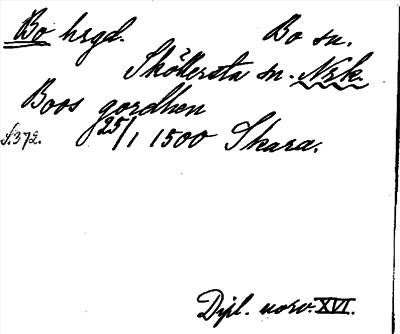 Bo hrgd. Bo sn.
Sköllersta sn. Nrk.
Boos gordhen
s. 372. 25/1 1500 Skara.
Dipl. norv. XVI.